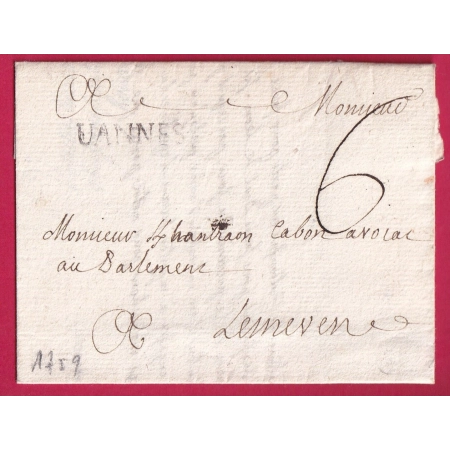 A Monsieur
VANNES
6
Monsieur Cabon avocat
au Parlement
A Lesneven
1759